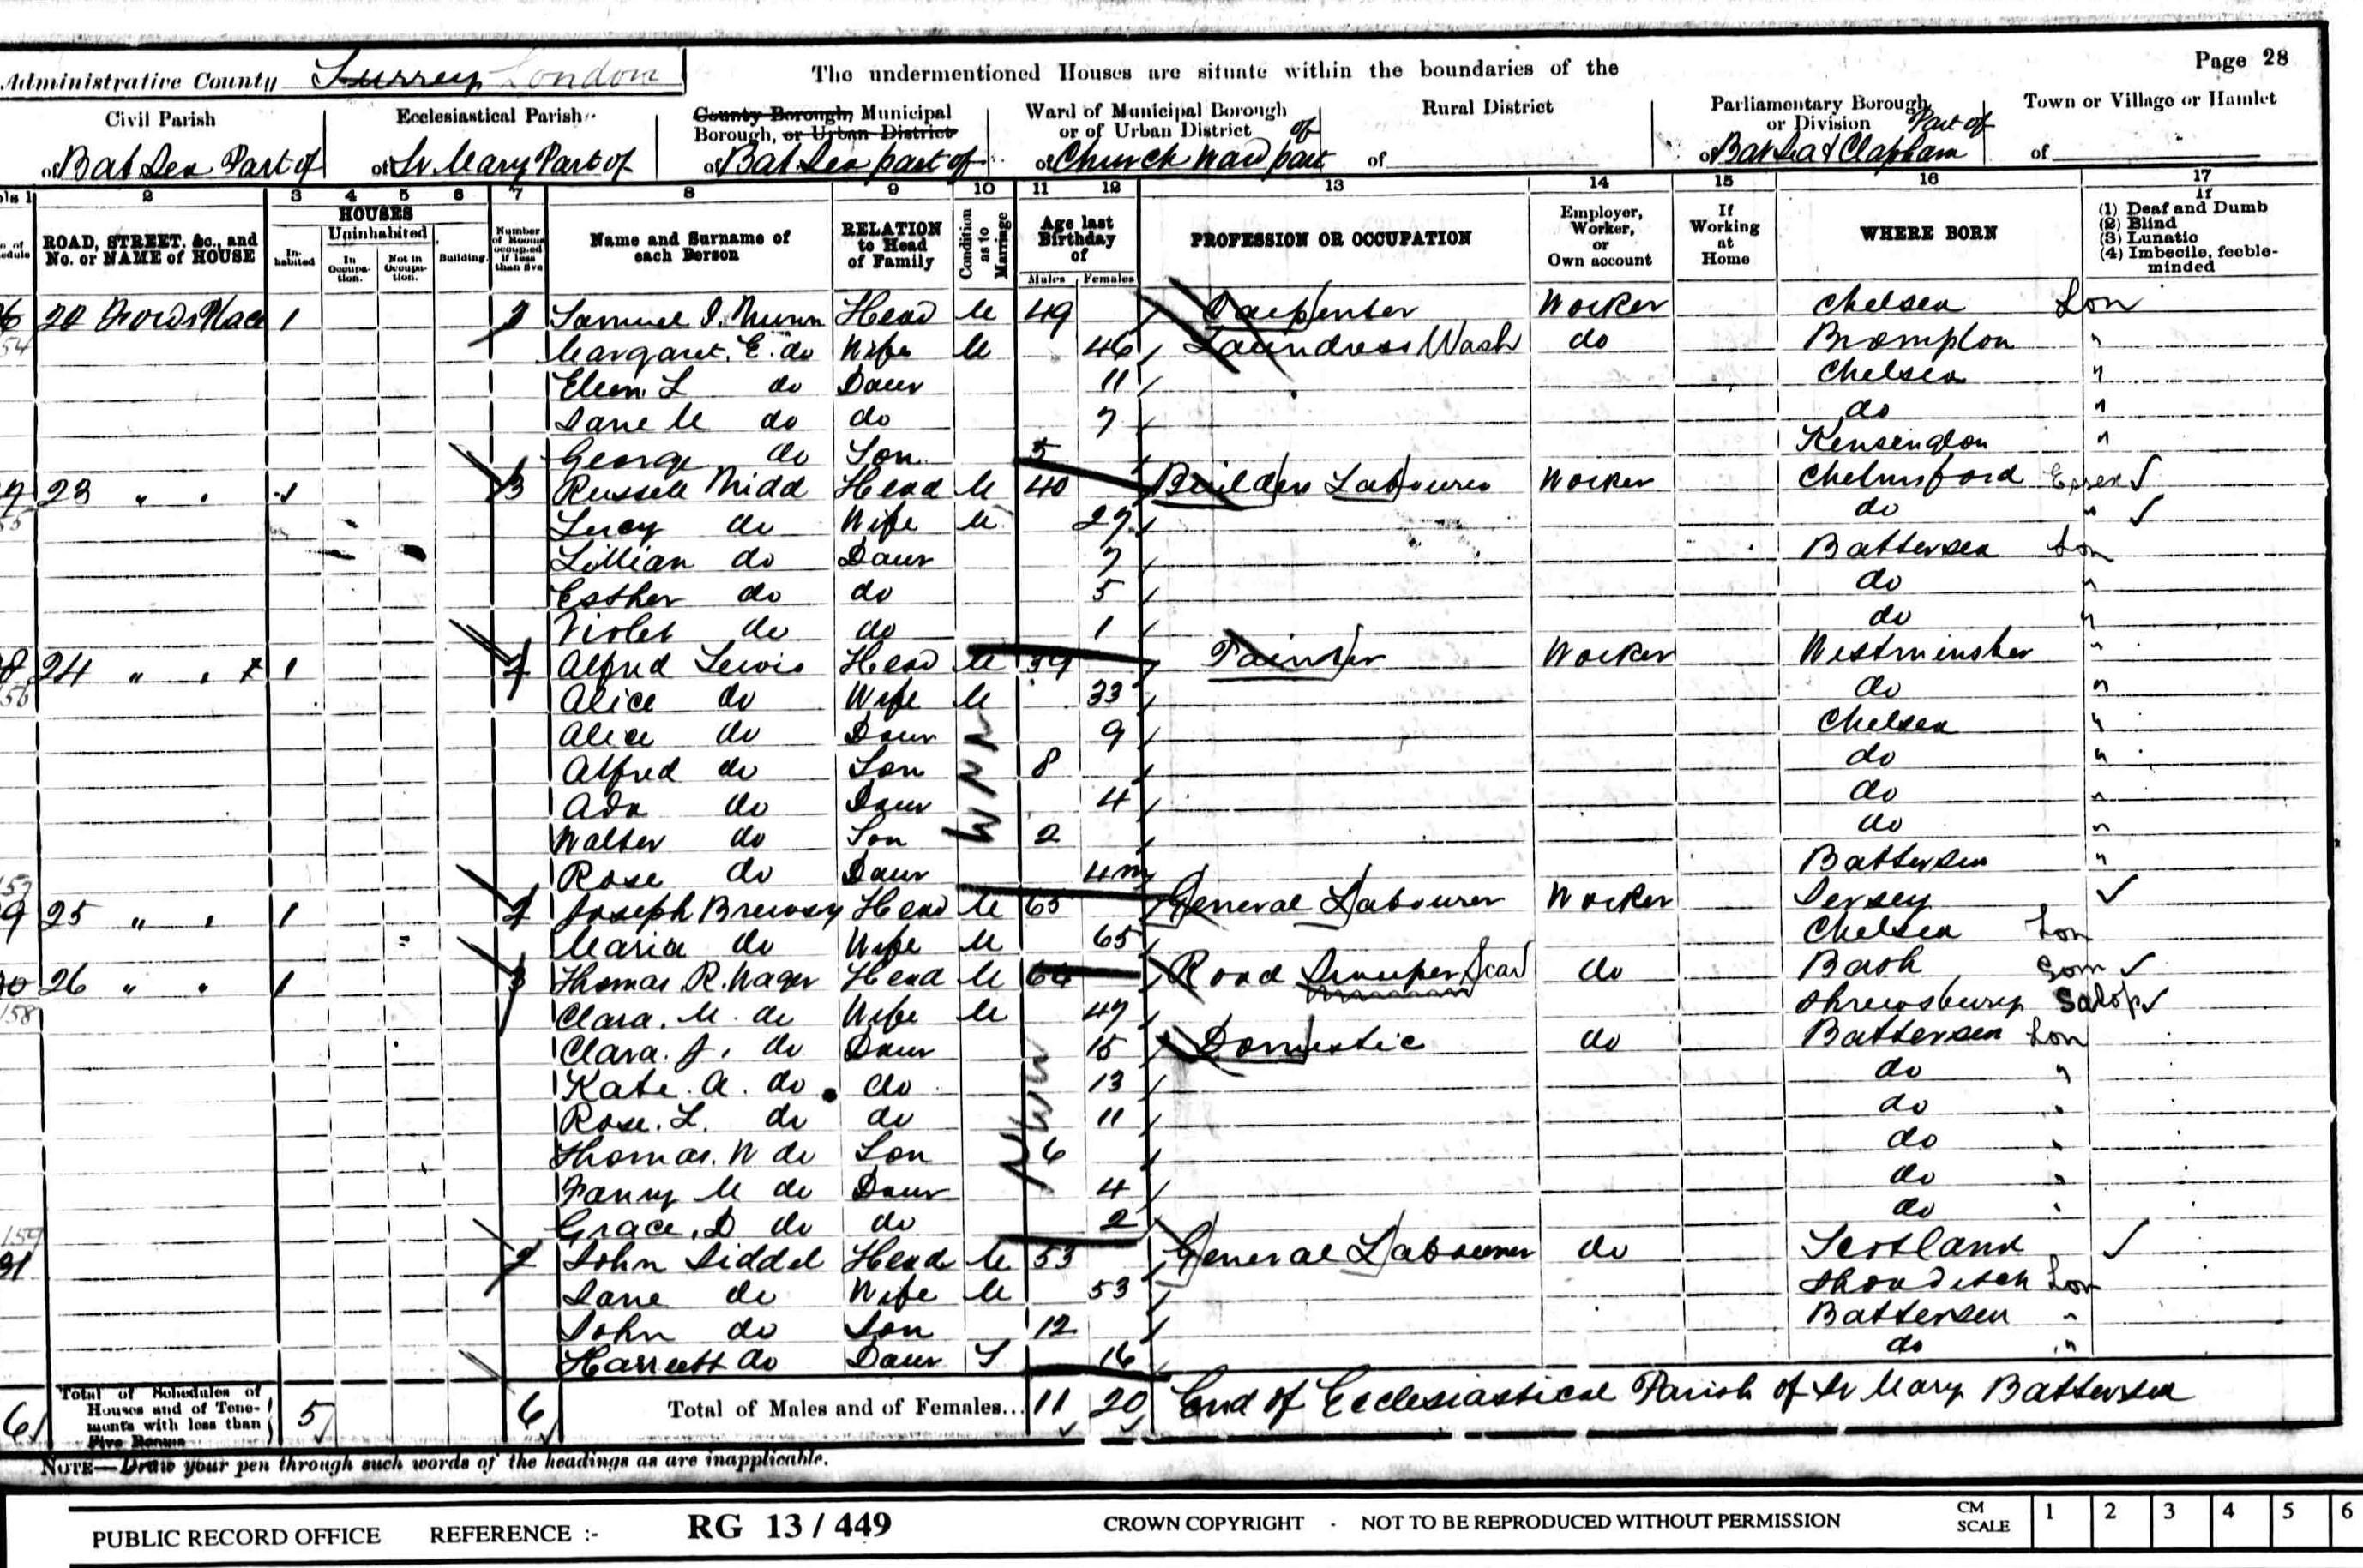 Administrative County Surrey London
The undermentioned Houses are situate within the boundaries of the
Page 28
Civil Parish
of Batsea Part of
Ecclesiastical Parish
of St Mary Part of
County Borough, Municipal Borough, or Urban District
of Batsea part of
Ward of Municipal Borough or of Urban District
of Church Ward part of
Rural District
of
Parliamentary Borough or Division
of Batsea & Clapham Part of
Town or Village or Hamlet
of
1 2 3 4 5 6 7 8 9 10 11 12 13 14 15 16 17
ROAD, STREET, &c., and No. or NAME of HOUSE
HOUSES
Inhabited
Uninhabited
In Occupation.
Not in Occupation.
Building.
Number of Rooms occupied if less than five
Name and Surname of each Person
RELATION to Head of Family
Condition as to Marriage
Age last Birthday of
Males Females
PROFESSION OR OCCUPATION
Employer, Worker, or Own account
If Working at Home
WHERE BORN
If
(1) Deaf and Dumb
(2) Blind
(3) Lunatic
(4) Imbecile, feeble-minded
1 2 Samuel Head M 49 Carpenter Worker Chelsea Lon
Margaret. E. do Wife M 46 Laundress Wash do Brompton "
L do Daur 11 Chelsea "
Jane M do do 7 do "
George do Son 5 Kensington "
23 " " 1 3 Russell Midd Head M 40 Builders Labourer Worker Chelmsford Essex
Lucy do Wife M 27 do "
Lillian do Daur 7 Battersea Lon
Esther do do 5 do "
Violet do do 1 do "
24 " " 1 2 Alfred Lewis Head M 39 Painter Worker Westminster "
Alice do Wife M 33 do "
Alice do Daur 9 Chelsea "
Alfred do Son 8 do "
Ada do Daur 4 do "
Walter do Son 2 do "
Rose do Daur 4m Battersea "
25 " " 1 2 Joseph Head M 65 General Labourer Worker Jersey
Maria do Wife M 65 Chelsea Lon
26 " " 1 3 Thomas R. Wager Head M 64 Road do Bath Som
Clara. M. do Wife M 47 Shrewsbury Salop
Clara. J. do Daur 15 Domestic do Battersea Lon
Kate. A. do do 13 do "
Rose. L. do do 11 do "
Thomas. W do Son 6 do "
Fanny M do Daur 4 do "
Grace. D do do 2 do "
2 John Siddel Head M 53 General Labourer do Scotland
Jane do Wife M 53 Shoreditch Lon
John do Son 12 Battersea "
Harriett do Daur S 16 do "
6 Total of Schedules of Houses and of Tenements with less than Five Rooms 5 6 Total of Males and of Females... 11 20 End of Ecclesiastical Parish of St Mary Battersea
NOTE—Draw your pen through such words of the headings as are inapplicable.
PUBLIC RECORD OFFICE REFERENCE :- RG 13/449 CROWN COPYRIGHT - NOT TO BE REPRODUCED WITHOUT PERMISSION CM SCALE 1 2 3 4 5 6